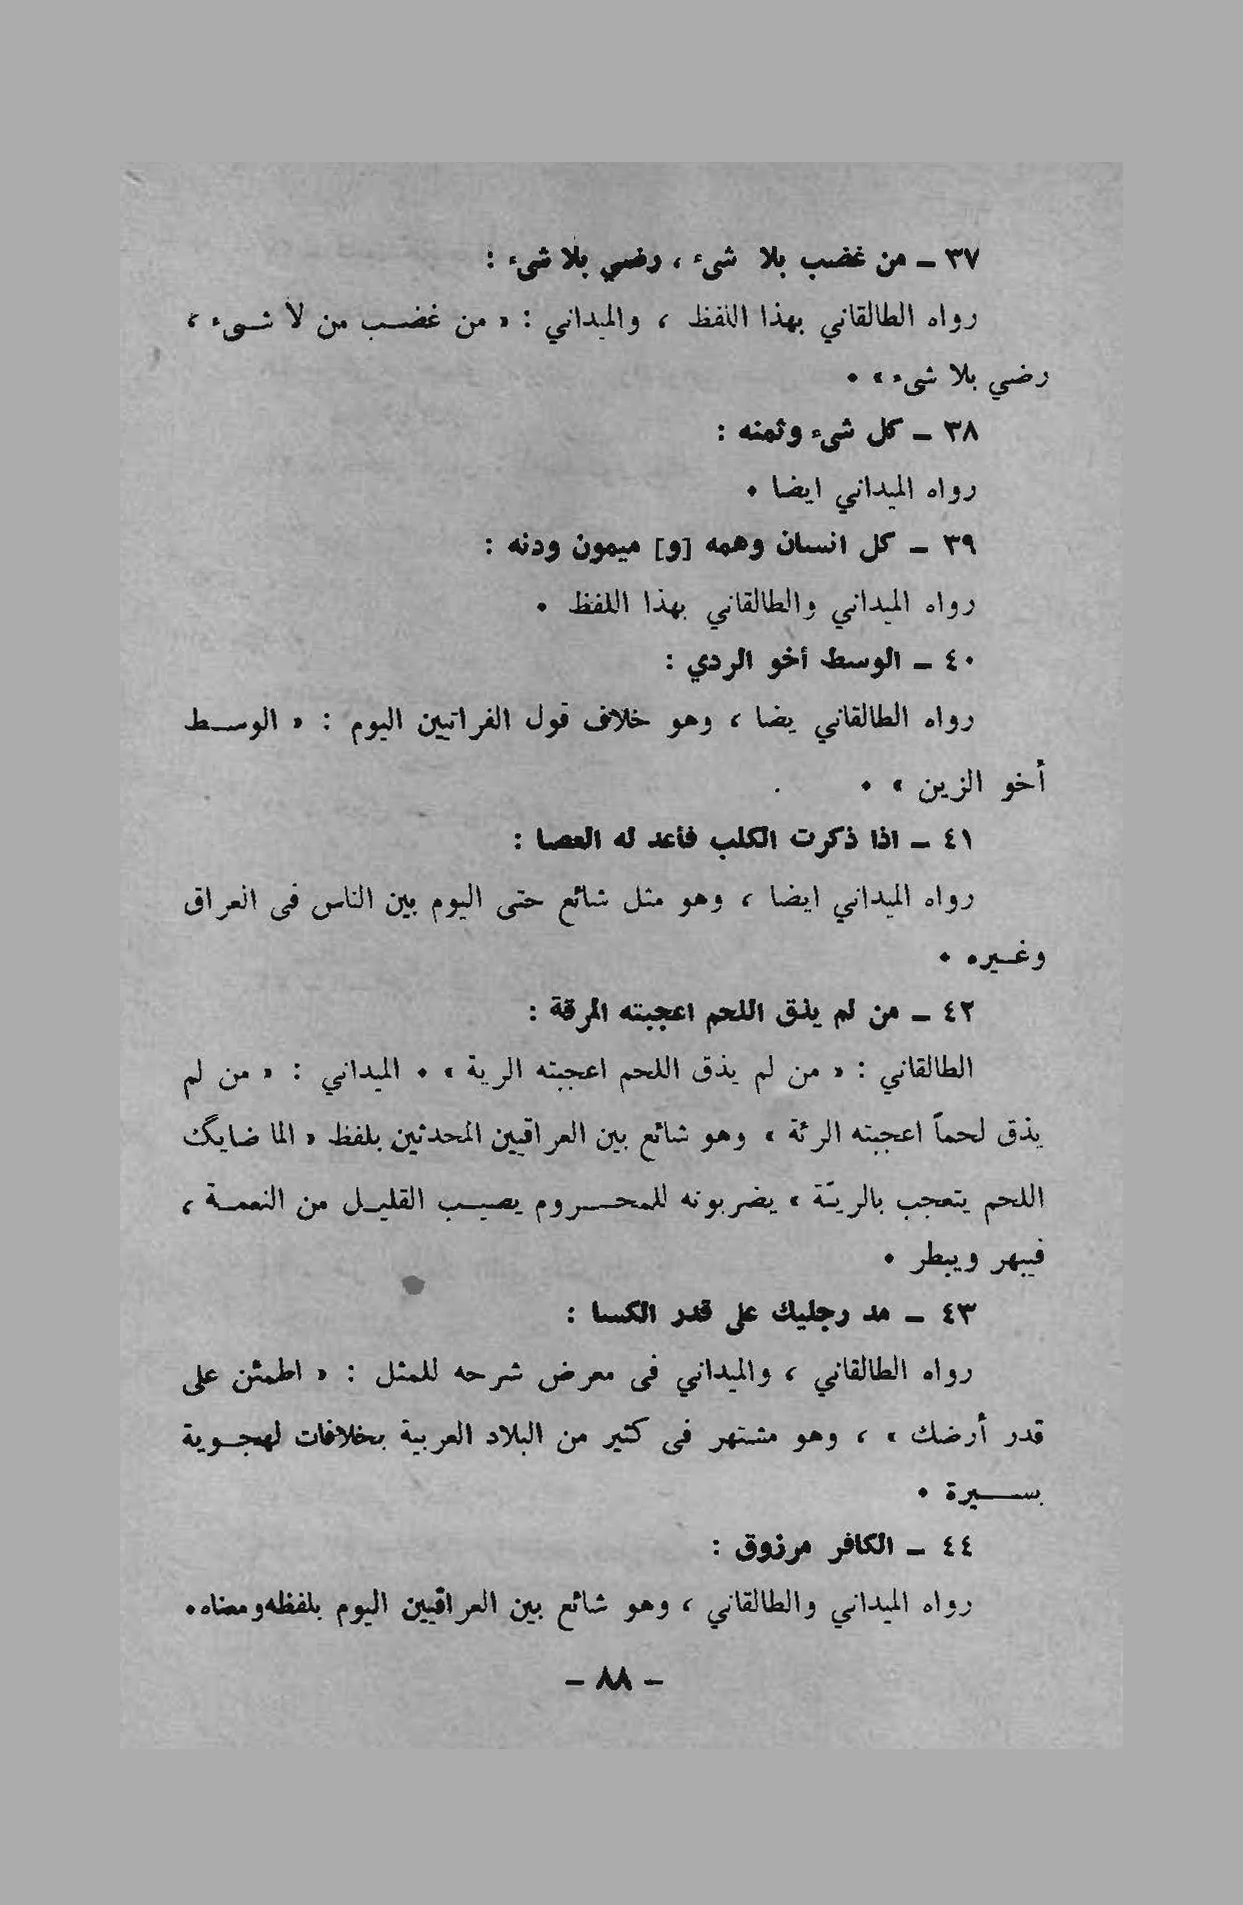 ٣٧ ـ من غضب بلا شىء ، رضي بلا شىء :
رواه الطالقاني بهذا اللفظ ، والميداني : « من غضب من لا شىء ،
رضي بلا شىء » ٠
٣٨ ـ كل شىء وثمنه :
رواه الميداني ايضا ٠
٣٩ ـ كل انسان وهمه [و] ميمون ودنه :
رواه الميداني والطالقاني بهذا اللفظ ٠
٤٠ ـ الوسط أخو الردي :
رواه الطالقاني يضا ، وهو خلاف قول الفراتيين اليوم : « الوسط
أخو الزين » ٠
٤١ ـ اذا ذكرت الكلب فأعد له العصا :
رواه الميداني ايضا ، وهو مثل شائع حتى اليوم بين الناس فى العراق
وغيره ٠
٤٢ ـ من لم يذق اللحم اعجبته المرقة :
الطالقاني : « من لم يذق اللحم اعجبته الرية » ٠ الميداني : « من لم
يذق لحماً اعجبته الرئة » وهو شائع بين العراقيين المحدثين بلفظ « الما ضايگ
اللحم يتعجب بالريّة » يضربونه للمحروم يصيب القليل من النعمة ،
فيبهر ويبطر ٠
٤٣ ـ مد رجليك على قدر الكسا :
رواه الطالقاني ، والميداني فى معرض شرحه للمثل : « اطمئن على
قدر أرضك » ، وهو مشتهر فى كثير من البلاد العربية بخلافات لهجوية
يسيرة ٠
٤٤ ـ الكافر مرزوق :
رواه الميداني والطالقاني ، وهو شائع بين العراقيين اليوم بلفظه ومعناه٠
ـ ٨٨ ـ